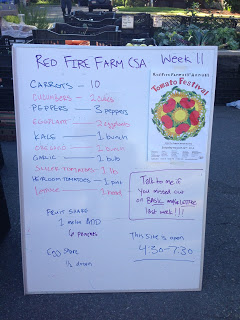 RED FIRE FARM CSA Week 11
CARROTS - 10
CUCUMBERS - 2 cukes
PEPPERS - 3 peppers
EGGPLANT - 2 eggplants
KALE - 1 bunch
OREGANO - 1 bunch
GARLIC - 1 bulb
SLICER TOMATOES - 1 lb
HEIRLOOM TOMATOES - 1 pint
Lettuce - 1 head
FRUIT SHARE
6 PEACHES
Egg Share
½ dozen
Talk to me if
you missed out
on BASIL
last week!!!
This site is open
4:30-7:30
Red Fire Farm's Annual
Tomato Festival